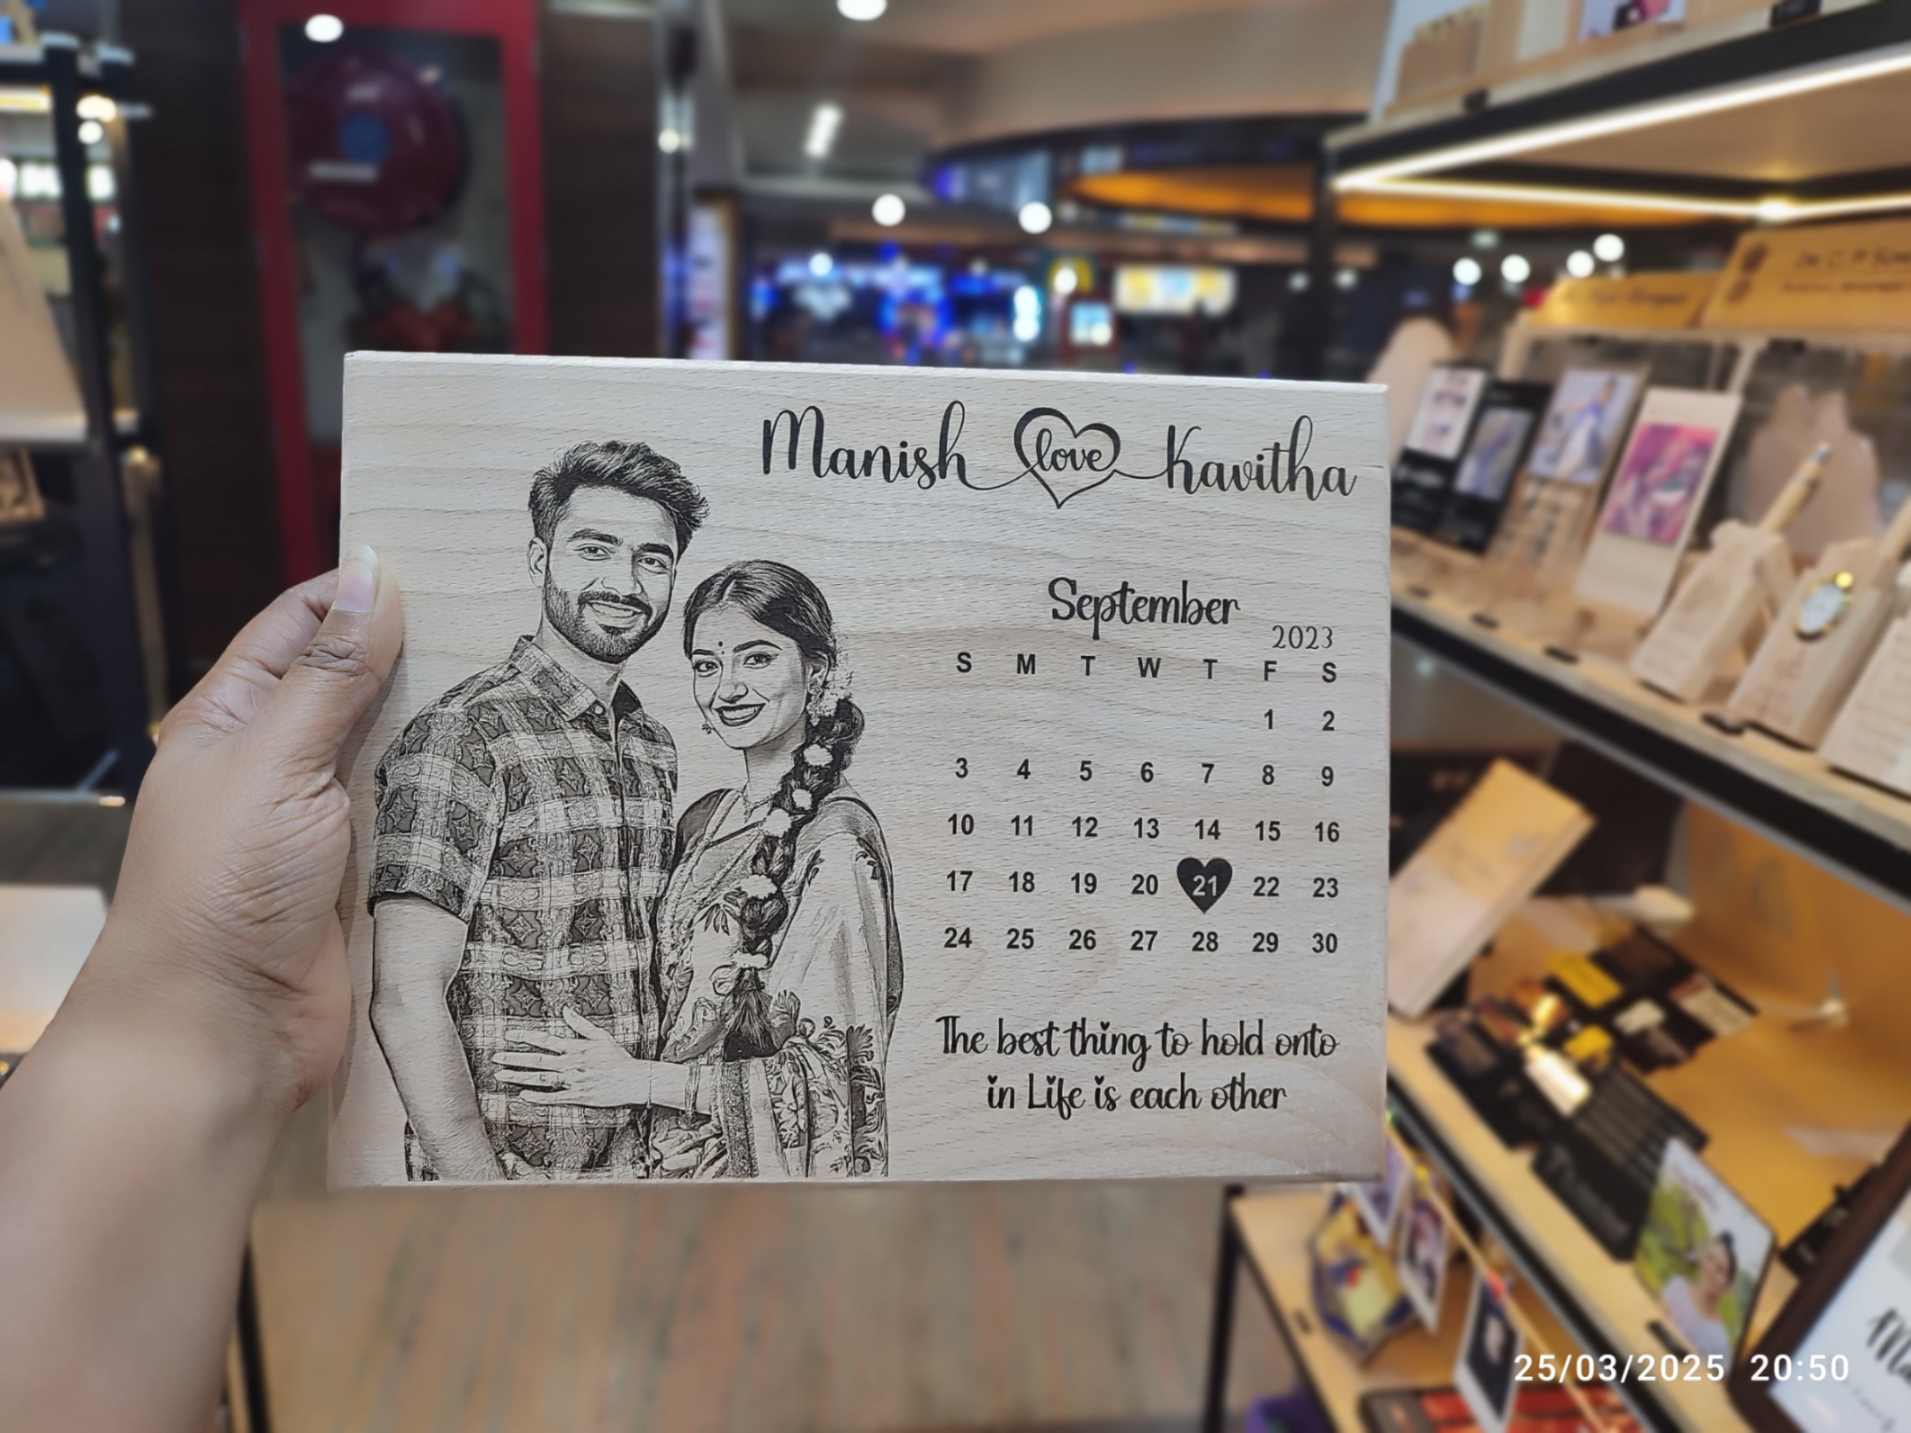 Manish love Kavitha
September
2023
S M T W T F S
1 2
3 4 5 6 7 8 9
10 11 12 13 14 15 16
17 18 19 20 21 22 23
24 25 26 27 28 29 30
The best thing to hold onto
in Life is each other
25/03/2025 20:50